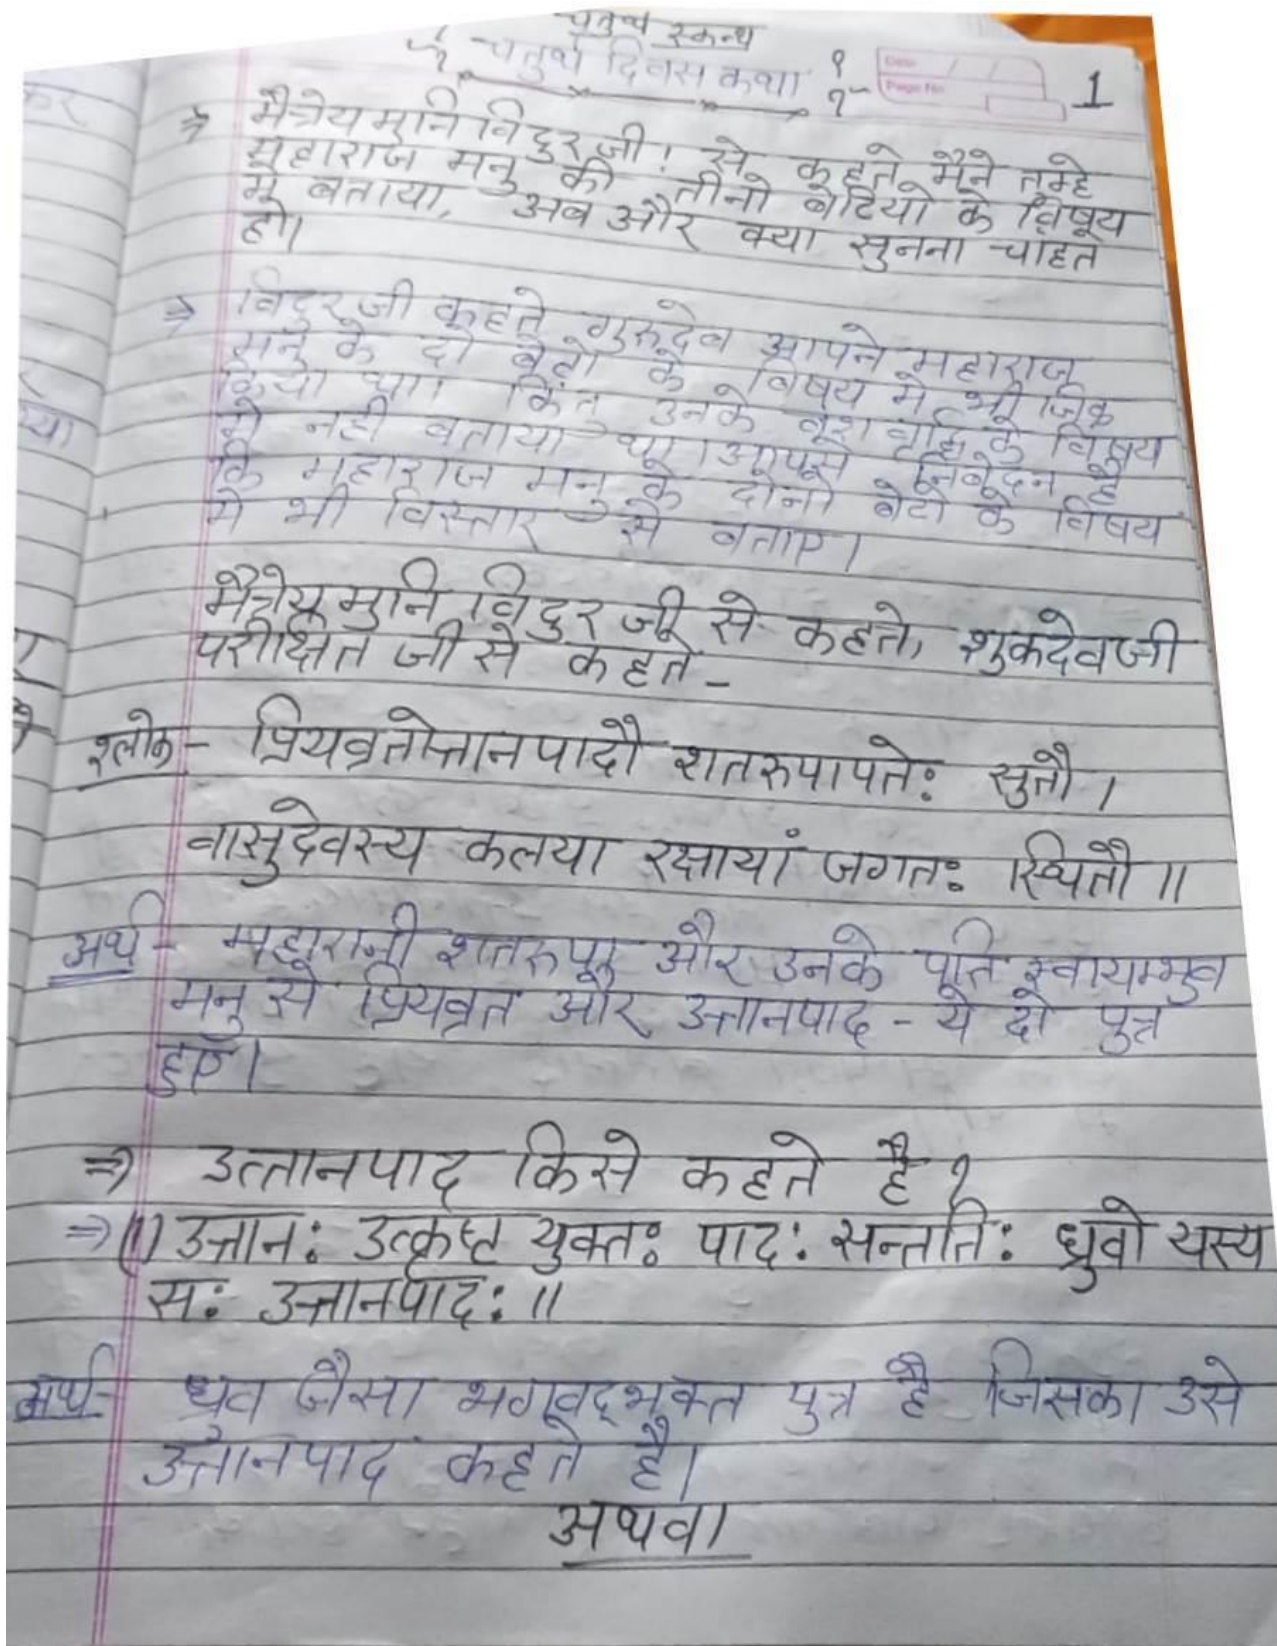 चतुर्थ स्कन्ध
चतुर्थ दिवस कथा
Date
Page No
1
⇒ मैत्रेय मुनि विदुर जी! से कहते मैने तुम्हे
महाराज मनु की तीनो बेटियो के विषय
मे बताया, अब और क्या सुनना चाहते
हो।
⇒ विदुर जी कहते गुरुदेव आपने महाराज
मनु के दो बेटो के विषय मे भी जिक्र
किया था। किंतु उनके वंश वृद्धि के विषय
मे नही बताया था। आपसे निवेदन है
कि महाराज मनु के दोनो बेटो के विषय
मे भी विस्तार से बताए।
मैत्रेय मुनि विदुर जी से कहते, शुकदेवजी
परीक्षित जी से कहते -
श्लोक - प्रियव्रतोत्तानपादौ शतरुपापतेः सुतौ।
वासुदेवस्य कलया रक्षायां जगतः स्थितौ॥
अर्थ - महारानी शतरुपा और उनके पति स्वायम्भुव
मनु से प्रियव्रत और उत्तानपाद - ये दो पुत्र
हुए।
⇒ उत्तानपाद किसे कहते है?
⇒ (1) उत्तानः उत्कृष्ट युक्तः पादः सन्ततिः ध्रुवो यस्य
सः उत्तानपादः॥
अर्थ - ध्रुव जैसा भगवद्भक्त पुत्र है जिसका उसे
उत्तानपाद कहते है।
अथवा